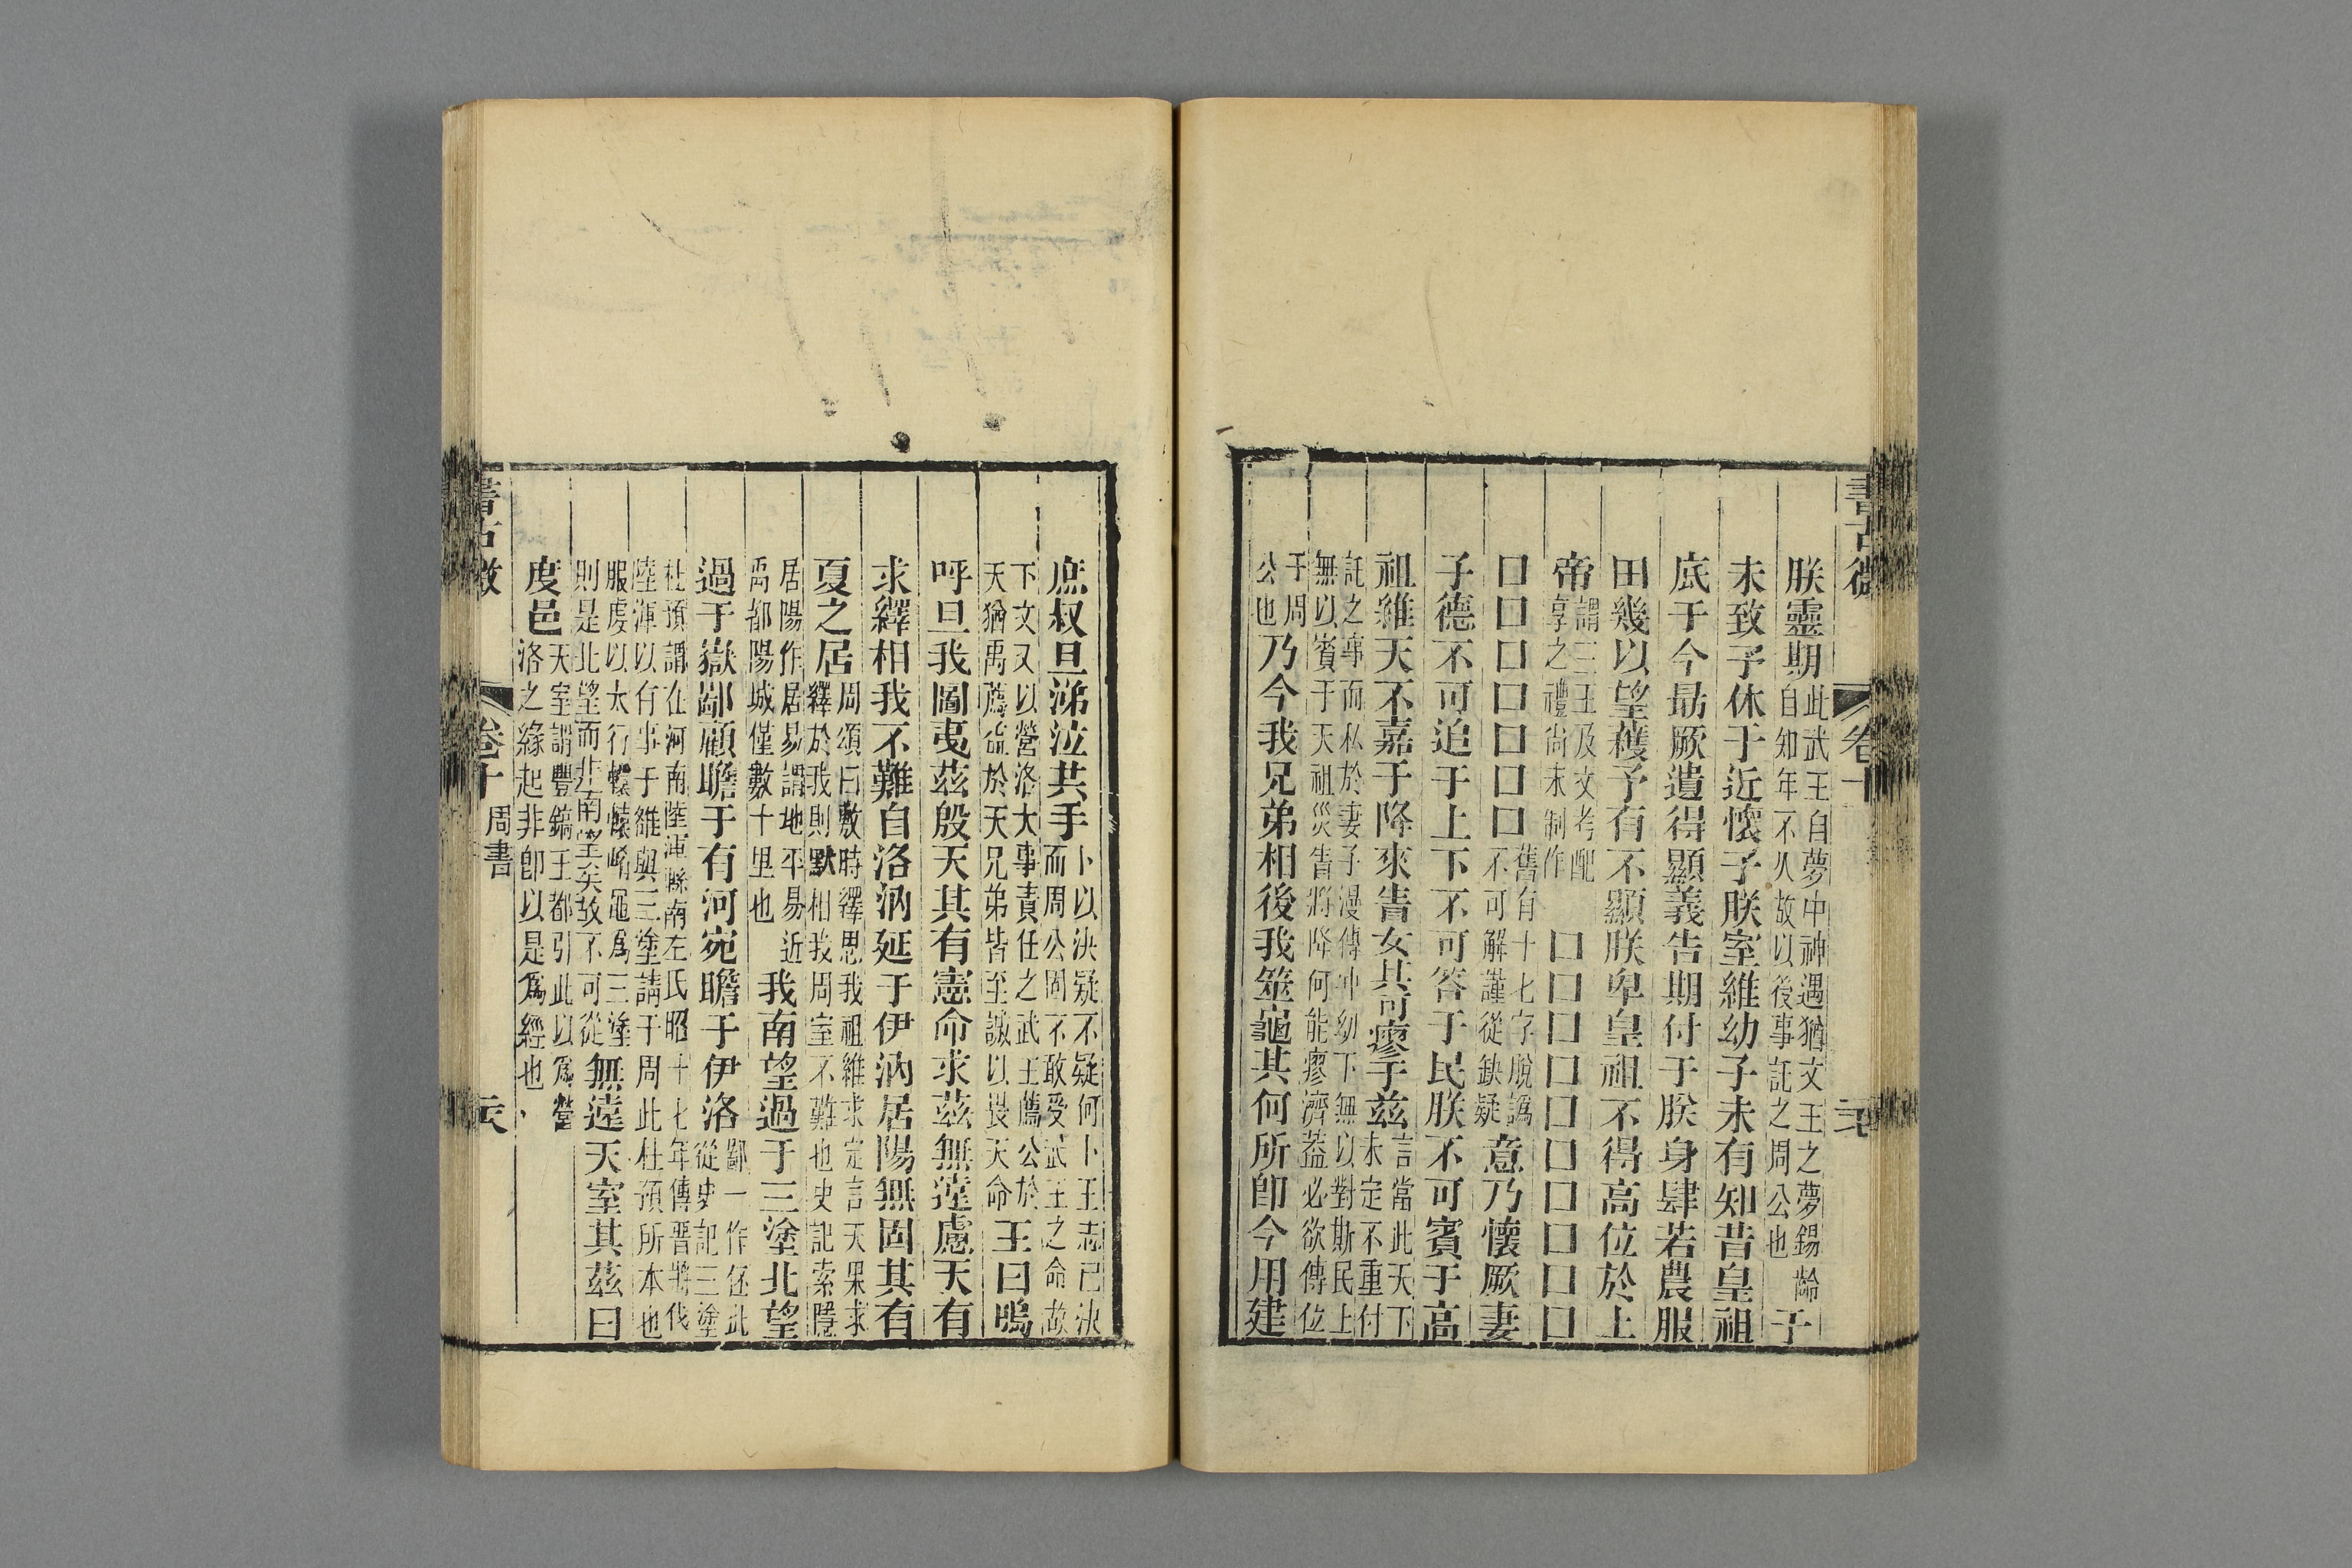 書古微
卷十
朕靈期此武王自夢中神遇猶文王之夢錫齡自知年不久故以後事託之周公也予
未致予休于近懷子朕室維幼子未有知昔皇祖
底于今勗厥遺得顯義告期付于朕身肆若農服
田幾以望穫予有不顯朕卑皇祖不得高位於上
帝謂三王及文考配享之禮尚未制作口口口口口口口口口口
口口口口口口口舊有十七字脫譌不可解謹從缺疑意乃懷厥妻
子德不可追于上下不可答于民朕不可賓于高
祖維天不嘉于降來眚女其可瘳于茲言當此天下未定不重付
託之事而私於妻子漫傳沖幼下無以對斯民上無以賓于天祖災眚將降何能瘳濟葢必欲傳位
于周公也乃今我兄弟相後我筮龜其何所卽今用建
庶叔旦涕泣共手卜以決疑不疑何卜王志已決而周公固不敢受武王之命故
下文又以營洛大事責任之武王薦公於天猶禹薦益於天兄弟皆至誠以畏天命王曰嗚
呼旦我圖夷茲殷天其有憲命求茲無遠慮天有
求繹相我不難自洛汭延于伊汭居陽無固其有
夏之居周頌曰敷時繹思我祖維求定言天果求繹於我則默相我周室不難也史記索隱
居陽作居易謂地平易近禹都陽城僅數十里也我南望過于三塗北望
過于嶽鄙顧瞻于有河宛瞻于伊洛鄙一作伾此從史記三塗
杜預謂在河南陸渾縣南左氏昭十七年傳晉將伐陸渾以有事于雒與三塗請于周此杜預所本也
服虔以太行轘轅崤黽爲三塗則是北望而非南望矣故不可從無遠天室其茲曰
度邑天室謂豐鎬王都引此以爲營洛之緣起非卽以是爲經也
卷十
周書